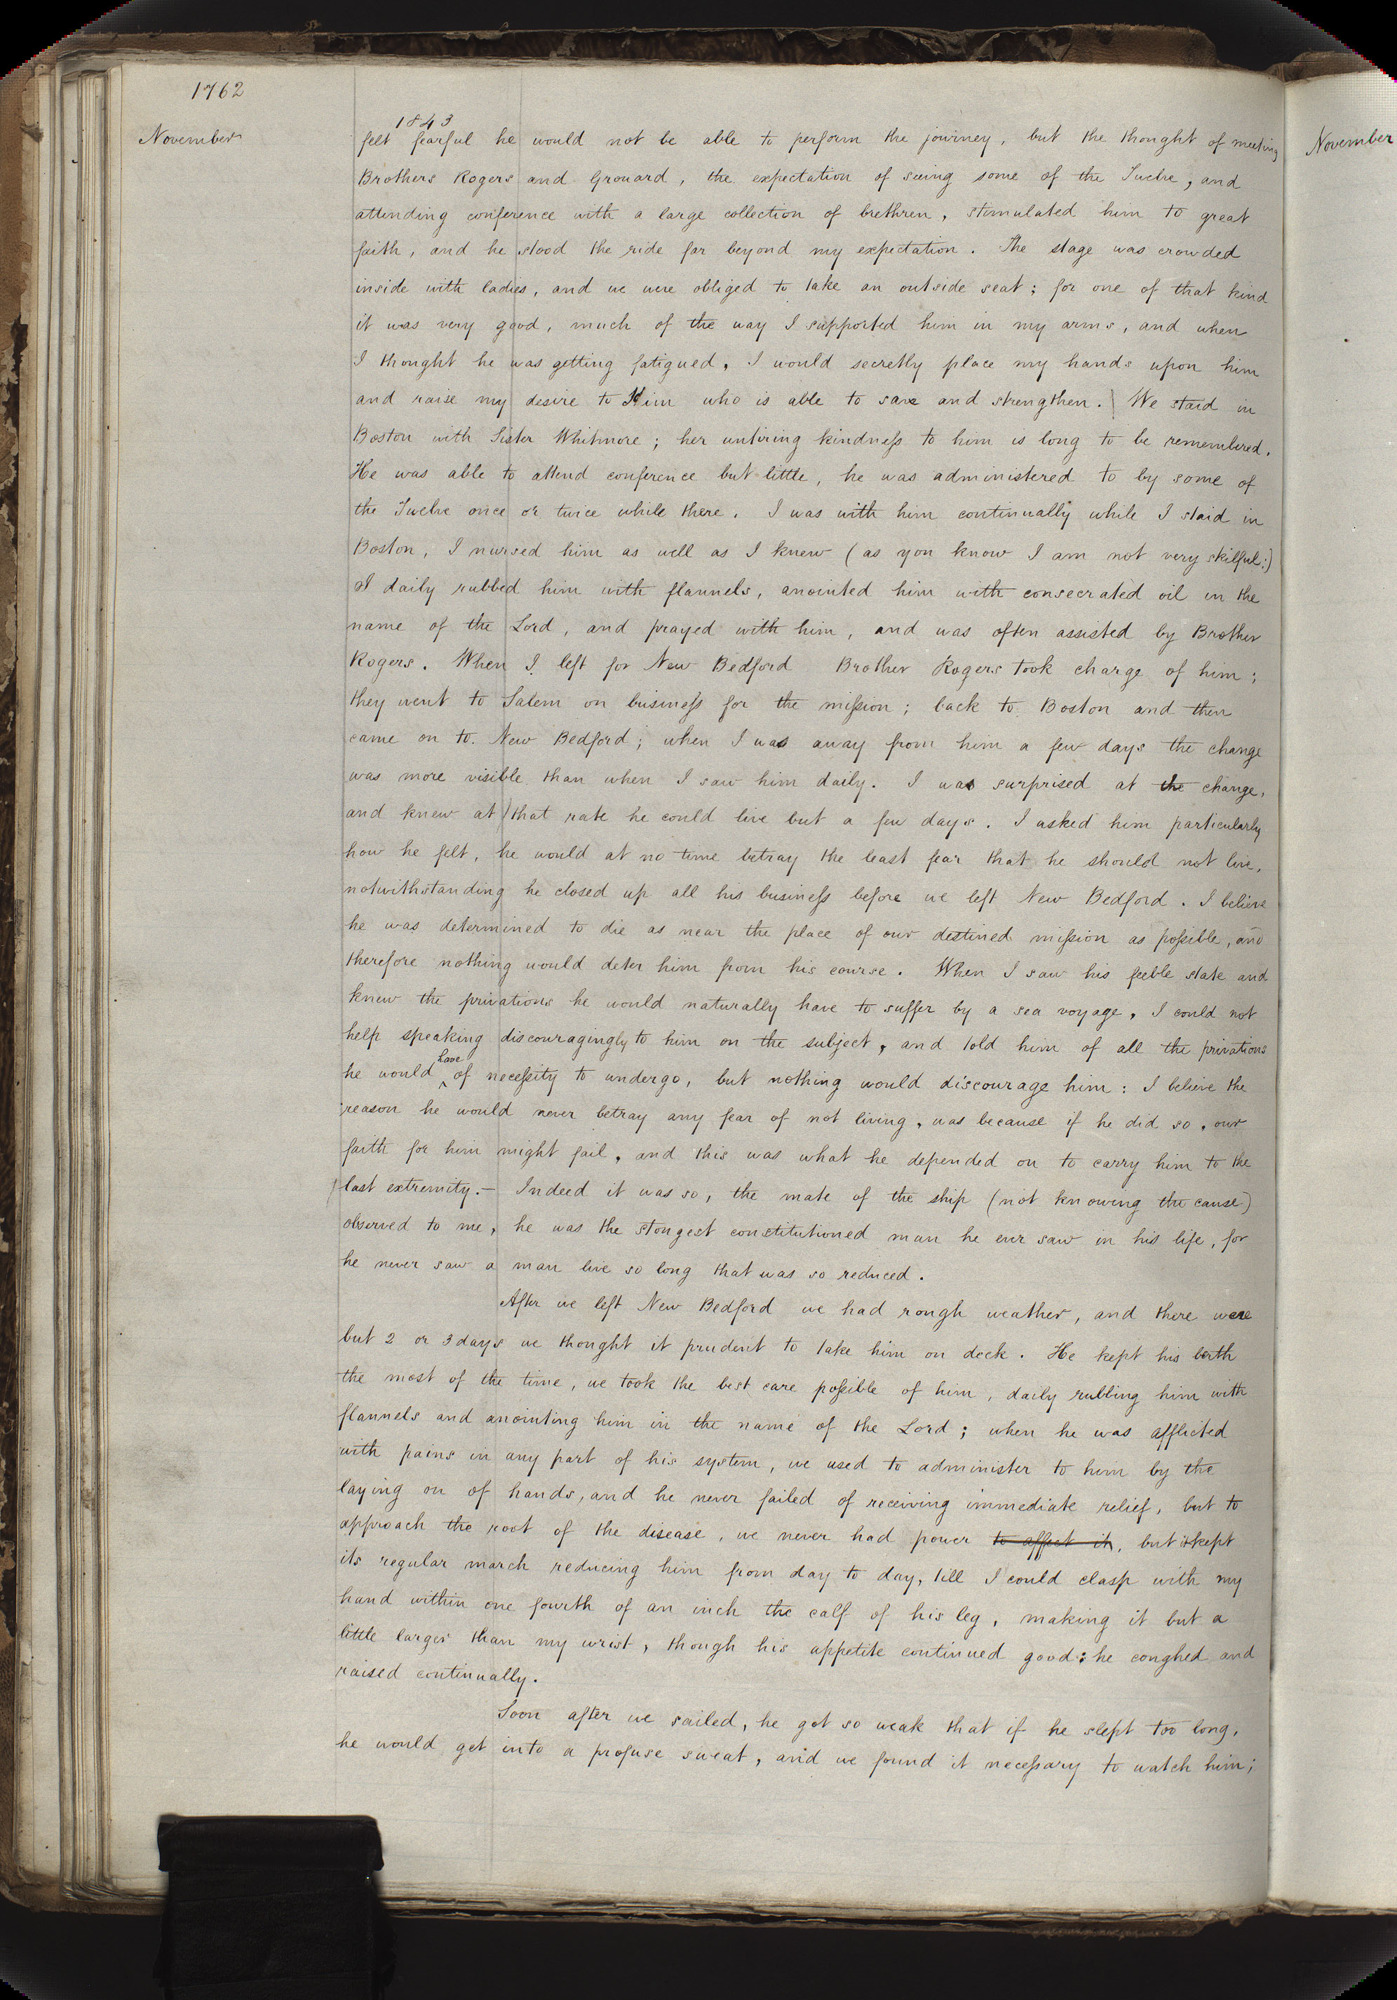 1762
1843
November
felt fearful he would not be able to perform the journey, but the thought of meeting
Brothers Rogers and Grouard, the expectation of seeing some of the Twelve, and
attending conference with a large collection of brethren, stimulated him to great
faith, and he stood the ride far beyond my expectation. The stage was crowded
inside with ladies, and we were obliged to take an outside seat; for one of that kind
it was very good, much of the way I supported him in my arms, and when
I thought he was getting fatigued, I would secretly place my hands upon him
and raise my desire to Him who is able to save and strengthen. We staid in
Boston with Sister Whitmore; her untiring kindness to him is long to be remembered.
He was able to attend conference but little, he was administered to by some of
the Twelve once or twice while there. I was with him continually while I staid in
Boston, I nursed him as well as I knew (as you know I am not very skilful:)
I daily rubbed him with flannels, anointed him with consecrated oil in the
name of the Lord, and prayed with him, and was often assisted by Brother
Rogers. When I left for New Bedford Brother Rogers took charge of him;
they went to Salem on business for the mission; back to Boston and then
came on to New Bedford; when I was away from him a few days the change
was more visible than when I saw him daily. I was surprised at the change,
and knew at that rate he could live but a few days. I asked him particularly
how he felt, he would at no time betray the least fear that he should not live,
notwithstanding he closed up all his business before we left New Bedford. I believe
he was determined to die as near the place of our destined mission as possible, and
therefore nothing would deter him from his course. When I saw his feeble state and
knew the privations he would naturally have to suffer by a sea voyage, I could not
help speaking discouragingly to him on the subject, and told him of all the privations
he would have of necessity to undergo, but nothing would discourage him: I believe the
reason he would never betray any fear of not living, was because if he did so, our
faith for him might fail, and this was what he depended on to carry him to the
last extremity.— Indeed it was so, the mate of the ship (not knowing the cause)
observed to me, he was the stongest constitutioned man he ever saw in his life, for
he never saw a man live so long that was so reduced.
After we left New Bedford we had rough weather, and there were
but 2 or 3 days we thought it prudent to take him on deck. He kept his berth
the most of the time, we took the best care possible of him, daily rubbing him with
flannels and anointing him in the name of the Lord; when he was afflicted
with pains in any part of his system, we used to administer to him by the
laying on of hands, and he never failed of receiving immediate relief, but to
approach the root of the disease, we never had power to affect it, but it kept
its regular march reducing him from day to day, till I could clasp with my
hand within one fourth of an inch the calf of his leg, making it but a
little larger than my wrist, though his appetite continued good; he coughed and
raised continually.
Soon after we sailed, he got so weak that if he slept too long,
he would get into a profuse sweat, and we found it necessary to watch him;
November